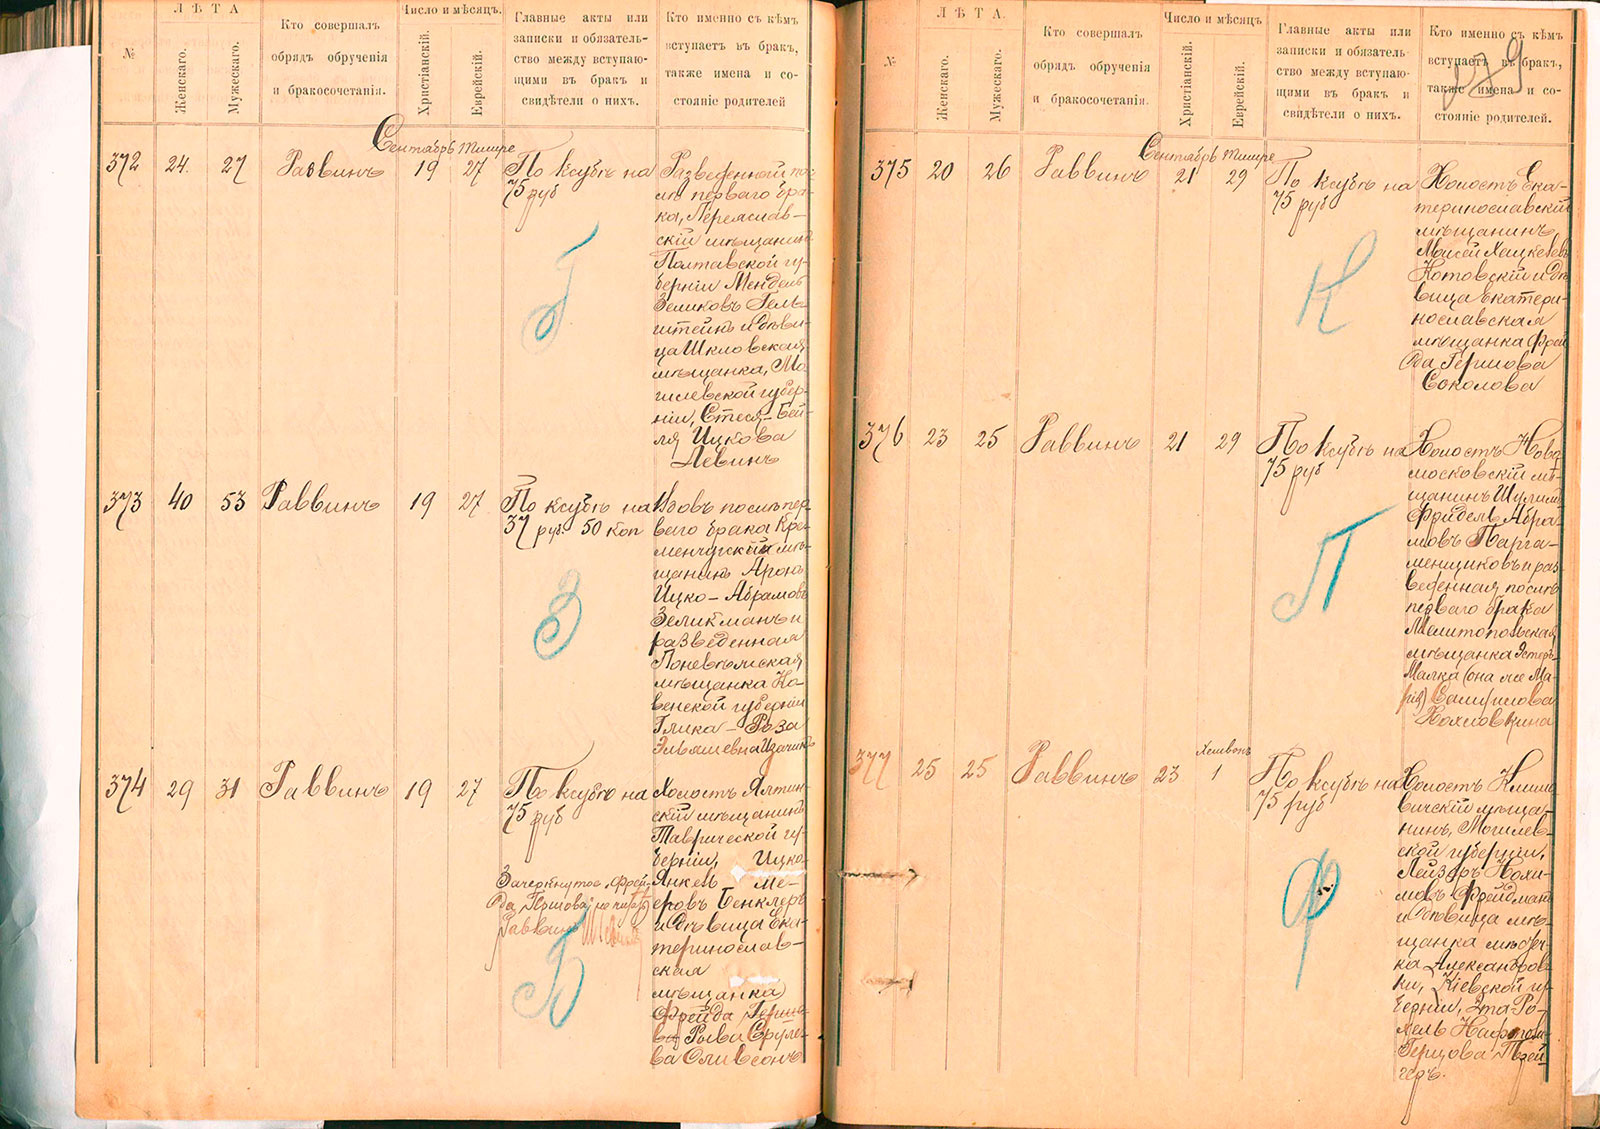 №
ЛѢТА
Женскаго.
Мужескаго.
Кто совершалъ
обрядъ обрученія
и бракосочетанія.
Число и мѣсяцъ.
Христіанскій.
Еврейскій.
Главные акты или
записки и обязатель-
ство между вступаю-
щими въ бракъ и
свидѣтели о нихъ.
Кто именно съ кѣмъ
вступаетъ въ бракъ,
также имена и со-
стояніе родителей
Сентябрь Тишре
372 24 27 Раввинъ 19 27
По ксубѣ на
75 руб
Разведенный пос
лѣ перваго бра-
ка, Переяслав-
скій мѣщанинъ
Полтавской гу-
берніи Мендель
Зеликовъ Гель-
штейнъ и дѣви-
ца Шкловская
мѣщанка, Мо-
гилевской губер-
ніи, Стеся-Бей-
ля Ицкова
Левинъ
Г
373 40 53 Раввинъ 19 27
По ксубѣ на
37 руб. 50 коп
Вдовъ послѣ пер
ваго брака Кре-
менчугскій мѣ-
щанинъ Аронъ
Ицко-Абрамовъ
Зеликманъ и
разведенная
Поневѣжская
мѣщанка Ко-
венской губерніи
Глика-Реза
Эльяшевна
З
374 29 31 Раввинъ 19 27
По ксубѣ на
75 руб
Зачеркнутое „Фрей-
да Гершова“ не
Раввинъ
Холостъ Ялтин-
скій мѣщанинъ
Таврической гу-
берніи, Ицко-
Янкель Ме-
еровъ Бенклеръ
и дѣвица Ека-
теринослав-
ская
мѣщанка
Фрейда Гершо-
ва Рыва Сруле-
ва Оливсонъ
Б
№
ЛѢТА.
Женскаго.
Мужескаго.
Кто совершалъ
обрядъ обрученія
и бракосочетанія.
Число и мѣсяцъ.
Христіанскій.
Еврейскій.
Главные акты или
записки и обязатель-
ство между вступаю-
щими въ бракъ и
свидѣтели о нихъ.
Кто именно съ кѣмъ
вступаетъ въ бракъ,
также имена и со-
стояніе родителей.
Сентябрь Тишре
375 20 26 Раввинъ 21 29
По ксубѣ на
75 руб
Холостъ Ека-
теринославскій
мѣщанинъ
Мойсей Хацкелевъ
Котовскій и дѣ
вица Екатери-
нославская
мѣщанка Фрей
да Гершова
Соколова
К
376 23 25 Раввинъ 21 29
По ксубѣ на
75 руб
Холостъ Ново
московскій мѣ-
щанинъ Шулимъ
Фройдель Абра
мовъ Парга-
менщиковъ и раз
веденная послѣ
перваго брака
Мелитопольская
мѣщанка Эстеръ-
Малка (она же Ма-
рія)
П
Хешвонъ
377 25 25 Раввинъ 23 1
По ксубѣ на
75 руб
Холостъ Климо
вичскій мѣща-
нинъ, Могилев-
ской губерніи,
Лейзеръ Нохи-
мовъ Фрейдманъ
и дѣвица мѣ-
щанка мѣстеч-
ка Александров
ки, Кіевской гу-
берніи, Эта-Ро-
хель
Герцова Трей-
геръ.
Ф